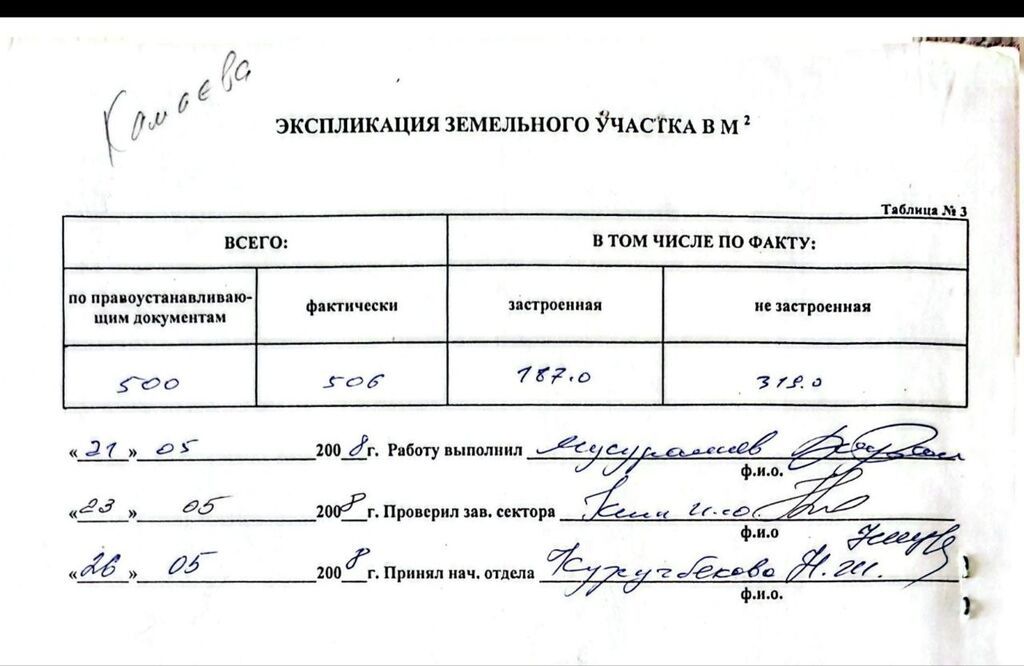 Камаева
ЭКСПЛИКАЦИЯ ЗЕМЕЛЬНОГО УЧАСТКА В М²
Таблица № 3
ВСЕГО: В ТОМ ЧИСЛЕ ПО ФАКТУ:
по правоустанавливаю-
щим документам фактически застроенная не застроенная
500 506 187.0 319.0
«21» 05 2008г. Работу выполнил
ф.и.о.
«23» 05 2008г. Проверил зав. сектора Ким
ф.и.о
«26» 05 2008г. Принял нач. отдела Н.Ш.
ф.и.о.